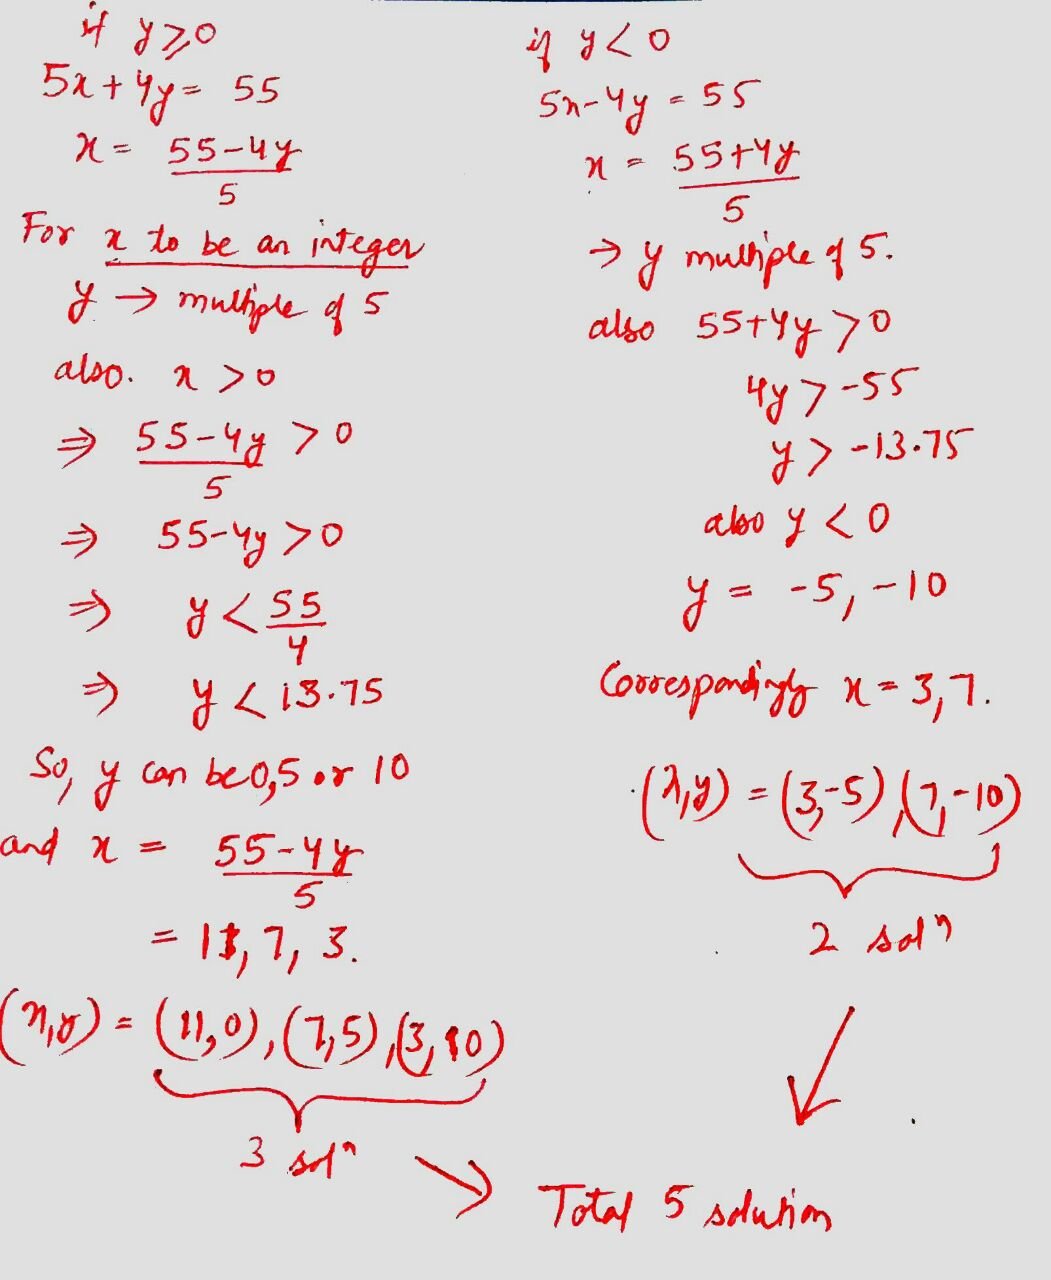 if y ≥ 0
5x + 4y = 55
x = 55-4y
5
For x to be an integer
y → multiple of 5
also. x > 0
⇒ 55-4y > 0
5
⇒ 55-4y > 0
⇒ y < 55
4
⇒ y < 13.75
So, y can be 0,5 or 10
and x = 55-4y
5
= 11, 7, 3.
(x,y) = (11,0), (7,5), (3,10)
3 solⁿ
if y < 0
5x-4y = 55
x = 55+4y
5
→ y multiple of 5.
also 55+4y > 0
4y > -55
y > -13.75
also y < 0
y = -5, -10
Correspondingly x = 3, 7.
(x,y) = (3,-5), (7,-10)
2 solⁿ
Total 5 solution